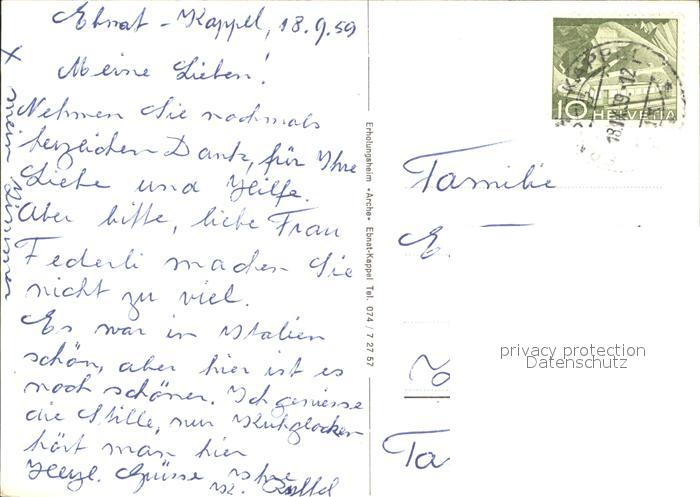 Ebnat - Kappel, 18.9.59
Meine Lieben!
Nehmen Sie nochmals
herzlichen Dank, für Ihre
Liebe und Hilfe.
Aber bitte, liebe Frau
Federli machen Sie
nicht zu viel.
Es war in Italien
schön, aber hier ist es
noch schöner. Ich geniesse
die Stille, nur Kuhglocken
hört man hier
Herzl. Grüsse Ihre
x mein Zimmer
Erholungsheim «Arche» Ebnat-Kappel Tel. 074 / 7 27 57
10 HELVETIA
KAPPEL
Familie
E.
privacy protection
Datenschutz
Ta